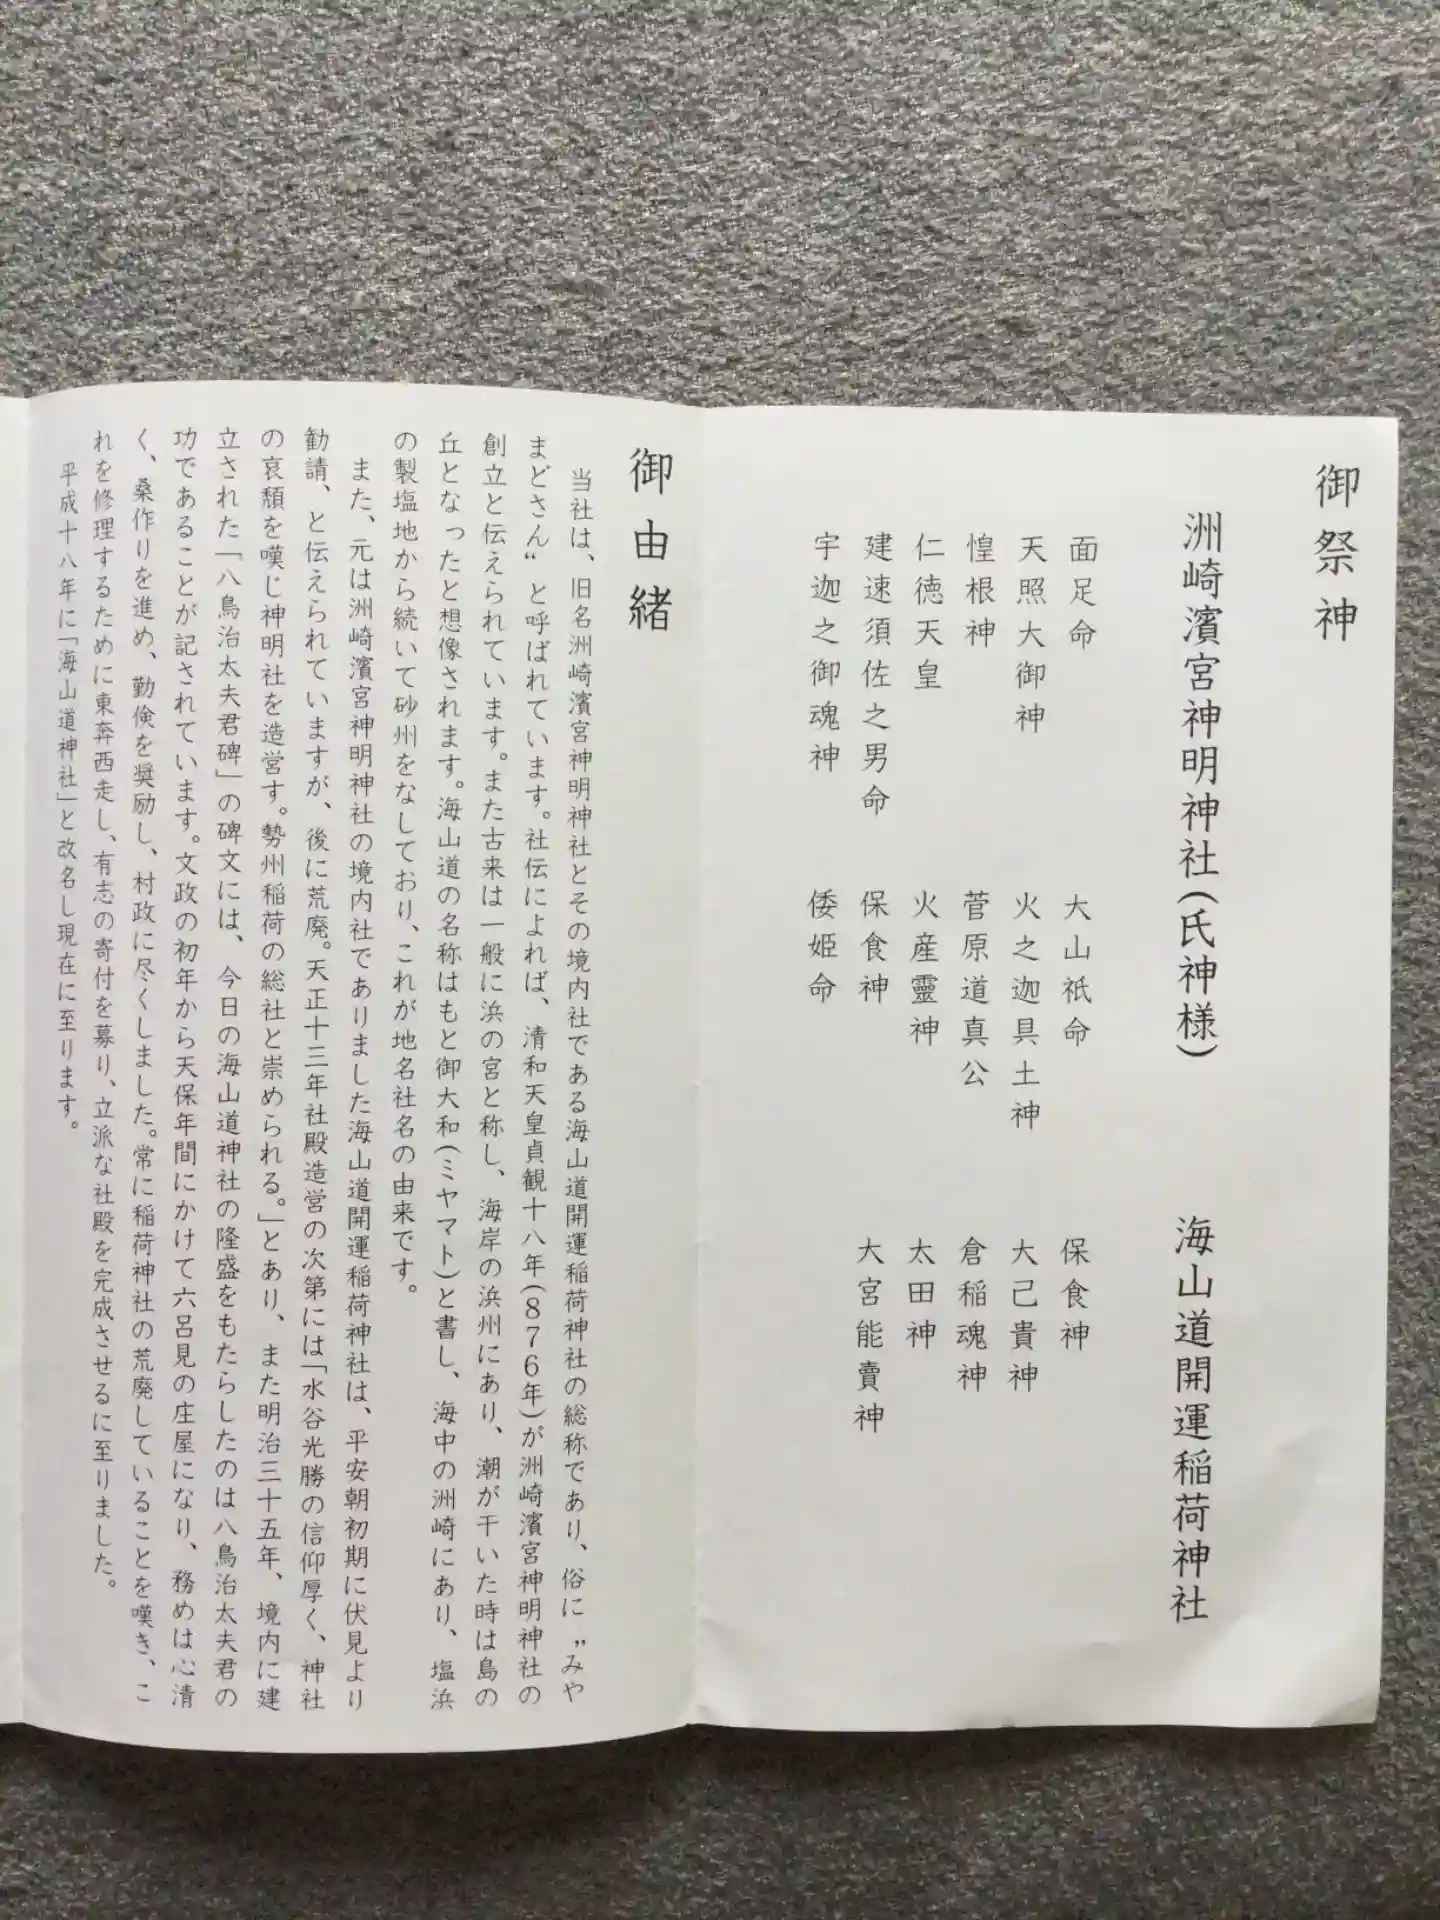 御祭神
洲崎濱宮神明神社(氏神様)
面足命
天照大御神
惶根神
仁徳天皇
建速須佐之男命
宇迦之御魂神
大山祇命
火之迦具土神
菅原道真公
火産靈神
保食神
倭姫命
海山道開運稲荷神社
保食神
大己貴神
倉稲魂神
太田神
大宮能賣神
御由緒
当社は、旧名洲崎濱宮神明神社とその境内社である海山道開運稲荷神社の総称であり、俗に〝みや
まどさん〟と呼ばれています。社伝によれば、清和天皇貞観十八年(876年)が洲崎濱宮神明神社の
創立と伝えられています。また古来は一般に浜の宮と称し、海岸の浜州にあり、潮が干いた時は島の
丘となったと想像されます。海山道の名称はもと御大和(ミヤマト)と書し、海中の洲崎にあり、塩浜
の製塩地から続いて砂州をなしており、これが地名社名の由来です。
また、元は洲崎濱宮神明神社の境内社でありました海山道開運稲荷神社は、平安朝初期に伏見より
勧請、と伝えられていますが、後に荒廃。天正十三年社殿造営の次第には「水谷光勝の信仰厚く、神社
の哀頽を嘆じ神明社を造営す。勢州稲荷の総社と崇められる。」とあり、また明治三十五年、境内に建
立された「八鳥治太夫君碑」の碑文には、今日の海山道神社の隆盛をもたらしたのは八鳥治太夫君の
功であることが記されています。文政の初年から天保年間にかけて六呂見の庄屋になり、務めは心清
く、桑作りを進め、勤倹を奨励し、村政に尽くしました。常に稲荷神社の荒廃していることを嘆き、こ
れを修理するために東奔西走し、有志の寄付を募り、立派な社殿を完成させるに至りました。
平成十八年に「海山道神社」と改名し現在に至ります。